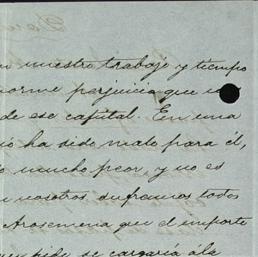 n nuestro trabajo y tiempo
norme perjuicio que
de ese capital. En una
io ha sido malo para él,
mucho peor, y no es
nosotros suframos todos
Arosemena que el importe
pide se cargaría á la